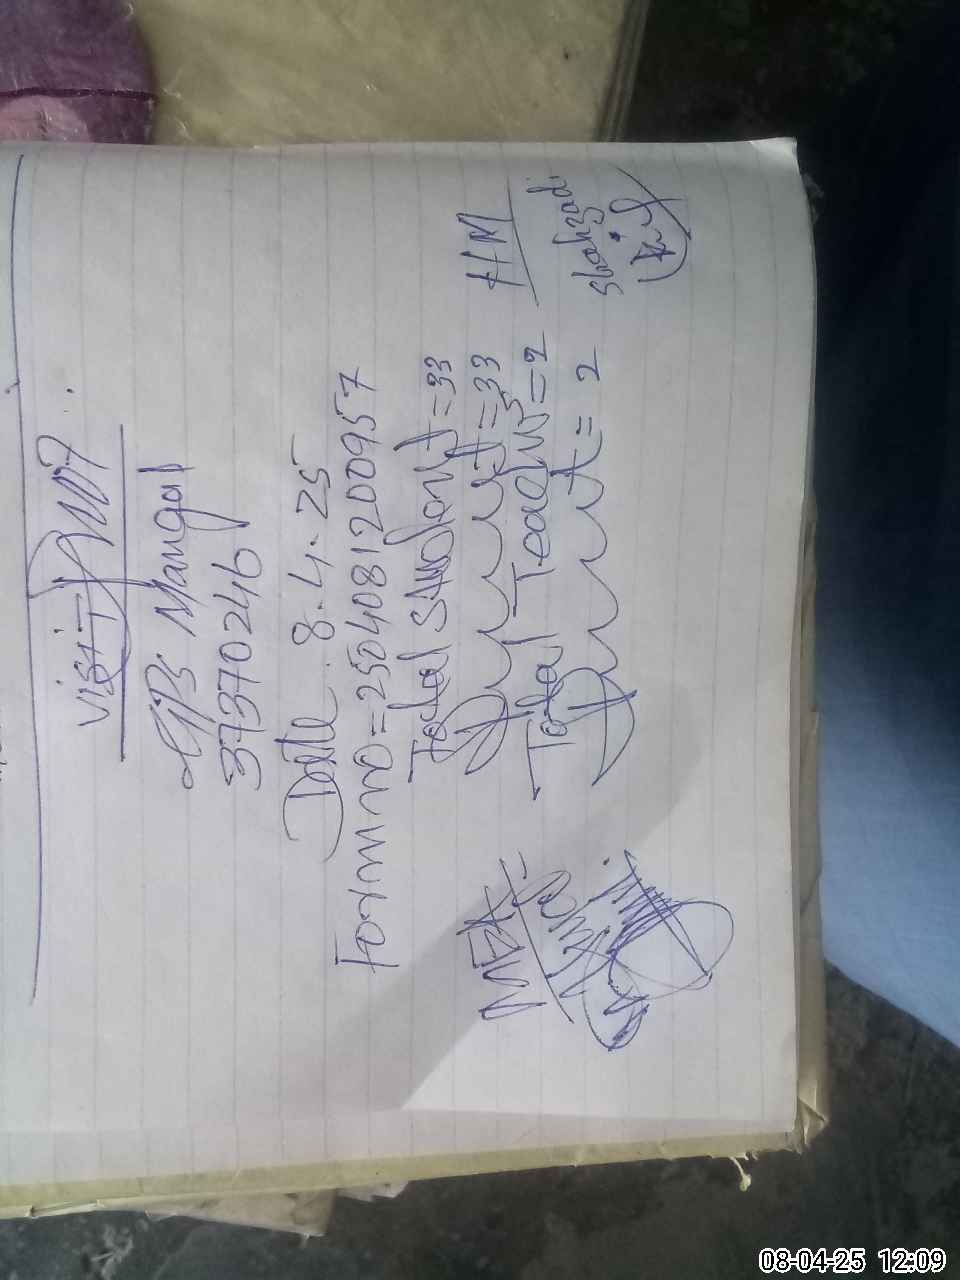 Visit
GPS Mangal
37370246
Date 8.4.25
Form no=2504081200957
Total Student=33
Present=33
Total Teachers=2
Present=2
MEA
HM
Shahzadi
08-04-25 12:09